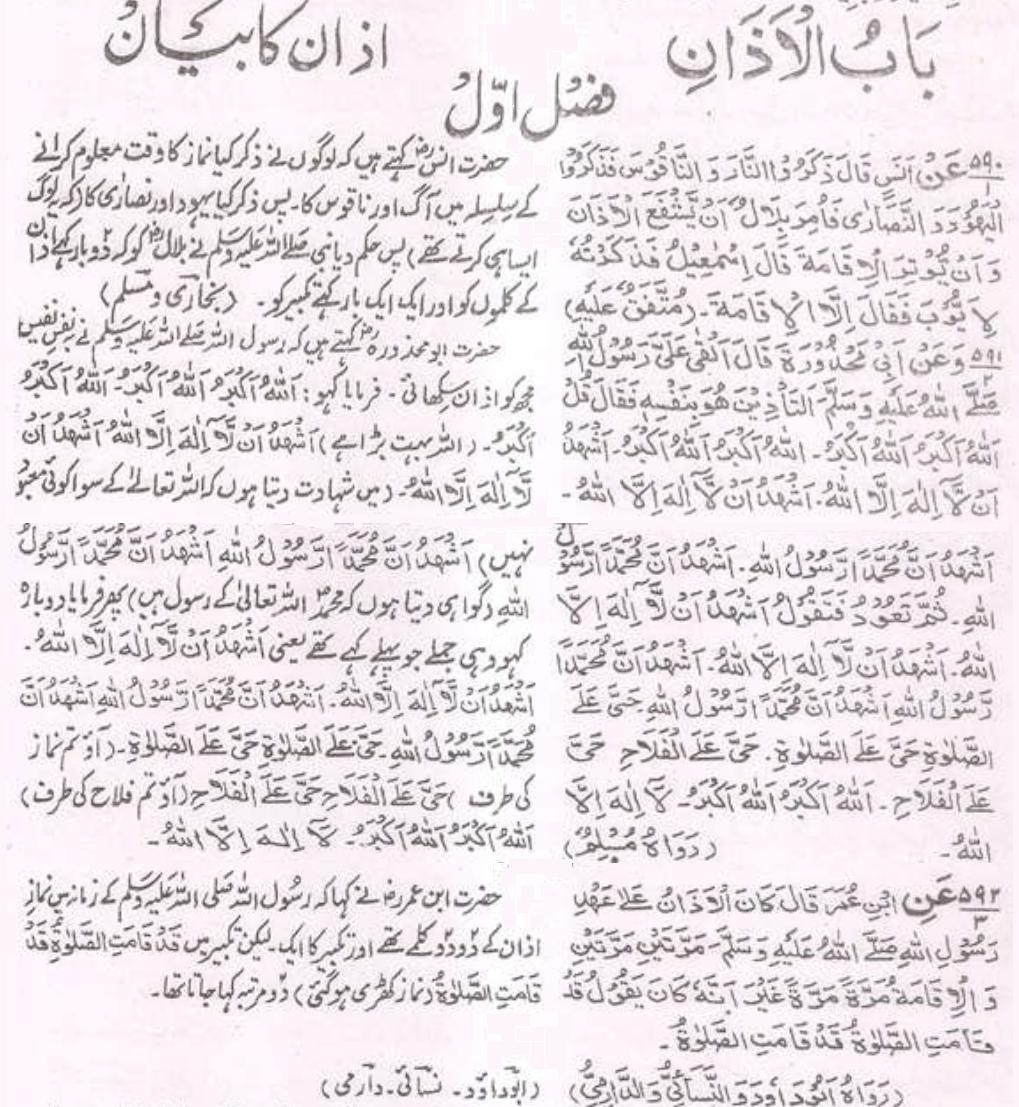 بَابُ الْاَذَانِ
اذان کا بیان
فصل اوّل
۵۹۰/۱ عَنْ اَنَسٍ قَالَ ذَكَرُوا النَّارَ وَ النَّاقُوْسَ فَذَكَرُوا
الْيَهُوْدَ وَ النَّصَارٰى فَاُمِرَ بِلَالٌ اَنْ يَّشْفَعَ الْاَذَانَ
وَ اَنْ يُّوْتِرَ الْاِقَامَةَ قَالَ اِسْمٰعِيْلُ فَذَكَرْتُهٗ
لِاَيُّوْبَ فَقَالَ اِلَّا الْاِقَامَةَ۔ (مُتَّفَقٌ عَلَيْهِ)
۵۹۱/۲ وَعَنْ اَبِيْ مَحْذُوْرَةَ قَالَ اَلْقٰى عَلَيَّ رَسُوْلُ اللهِ
صَلَّى اللهُ عَلَيْهِ وَسَلَّمَ التَّاْذِيْنَ هُوَ بِنَفْسِهٖ فَقَالَ قُلْ
اَللهُ اَكْبَرُ اَللهُ اَكْبَرُ۔ اَللهُ اَكْبَرُ اَللهُ اَكْبَرُ۔ اَشْهَدُ
اَنْ لَّا اِلٰهَ اِلَّا اللهُ۔ اَشْهَدُ اَنْ لَّا اِلٰهَ اِلَّا اللهُ۔
اَشْهَدُ اَنَّ مُحَمَّدًا رَّسُوْلُ اللهِ۔ اَشْهَدُ اَنَّ مُحَمَّدًا رَّسُوْلُ
اللهِ۔ ثُمَّ تَعُوْدُ فَتَقُوْلُ اَشْهَدُ اَنْ لَّا اِلٰهَ اِلَّا
اللهُ۔ اَشْهَدُ اَنْ لَّا اِلٰهَ اِلَّا اللهُ۔ اَشْهَدُ اَنَّ مُحَمَّدًا
رَّسُوْلُ اللهِ اَشْهَدُ اَنَّ مُحَمَّدًا رَّسُوْلُ اللهِ۔ حَيَّ عَلَى
الصَّلٰوةِ حَيَّ عَلَى الصَّلٰوةِ۔ حَيَّ عَلَى الْفَلَاحِ حَيَّ
عَلَى الْفَلَاحِ۔ اَللهُ اَكْبَرُ اَللهُ اَكْبَرُ۔ لَا اِلٰهَ اِلَّا
اللهُ۔ (رَوَاهُ مُسْلِمٌ)
۵۹۲/۳ عَنِ ابْنِ عُمَرَ قَالَ كَانَ الْاَذَانُ عَلٰى عَهْدِ
رَسُوْلِ اللهِ صَلَّى اللهُ عَلَيْهِ وَسَلَّمَ۔ مَرَّتَيْنِ مَرَّتَيْنِ
وَ الْاِقَامَةُ مَرَّةً مَرَّةً غَيْرَ اَنَّهٗ كَانَ يَقُوْلُ قَدْ
قَامَتِ الصَّلٰوةُ قَدْ قَامَتِ الصَّلٰوةُ۔
(رَوَاهُ اَبُوْدَاوٗدَ وَ النَّسَائِيُّ وَ الدَّارِمِيُّ)
حضرت انسؓ کہتے ہیں کہ لوگوں نے ذکر کیا نماز کا وقت معلوم کرانے
کے سلسلہ میں آگ اور ناقوس کا۔ پس ذکر کیا یہود اور نصاریٰ کا (کہ یہ لوگ
ایسا ہی کرتے تھے) پس حکم دیا نبی صلے اللہ علیہ وسلم نے بلالؓ کو کہ دو بار کہے اذان
کے کلموں کو اور ایک ایک بار کہے تکبیر کو۔ (بخاری و مسلم)
حضرت ابو محذورہؓ کہتے ہیں کہ رسول اللہ صلے اللہ علیہ وسلم نے بہ نفس نفیس
مجھ کو اذان سکھائی۔ فرمایا کہو: اَللهُ اَكْبَرُ اَللهُ اَكْبَرُ۔ اَللهُ اَكْبَرُ اَللهُ
اَكْبَرُ۔ (اللہ بہت بڑا ہے) اَشْهَدُ اَنْ لَّا اِلٰهَ اِلَّا اللهُ اَشْهَدُ اَنْ
لَّا اِلٰهَ اِلَّا اللهُ۔ (میں شہادت دیتا ہوں کہ اللہ تعالےٰ کے سوا کوئی معبود
نہیں) اَشْهَدُ اَنَّ مُحَمَّدًا رَّسُوْلُ اللهِ اَشْهَدُ اَنَّ مُحَمَّدًا رَّسُوْلُ
اللهِ (گواہی دیتا ہوں کہ محمدؐ اللہ تعالیٰ کے رسول ہیں) پھر فرمایا دوبارہ
کہو وہی جملے جو پہلے کہے تھے یعنی اَشْهَدُ اَنْ لَّا اِلٰهَ اِلَّا اللهُ۔
اَشْهَدُ اَنْ لَّا اِلٰهَ اِلَّا اللهُ۔ اَشْهَدُ اَنَّ مُحَمَّدًا رَّسُوْلُ اللهِ اَشْهَدُ اَنَّ
مُحَمَّدًا رَّسُوْلُ اللهِ۔ حَيَّ عَلَى الصَّلٰوةِ حَيَّ عَلَى الصَّلٰوةِ۔ (آؤ تم نماز
کی طرف) حَيَّ عَلَى الْفَلَاحِ حَيَّ عَلَى الْفَلَاحِ (آؤ تم فلاح کی طرف)
اَللهُ اَكْبَرُ اَللهُ اَكْبَرُ۔ لَا اِلٰهَ اِلَّا اللهُ۔
حضرت ابن عمرؓ نے کہا کہ رسول اللہ صلی اللہ علیہ وسلم کے زمانہ میں نماز
اذان کے دو دو کلمے تھے اور تکبیر کا ایک۔ لیکن تکبیر میں قَدْ قَامَتِ الصَّلٰوةُ قَدْ
قَامَتِ الصَّلٰوةُ (نماز کھڑی ہوگئی) دو مرتبہ کہا جاتا تھا۔
(ابوداؤد۔ نسائی۔ دارمی)